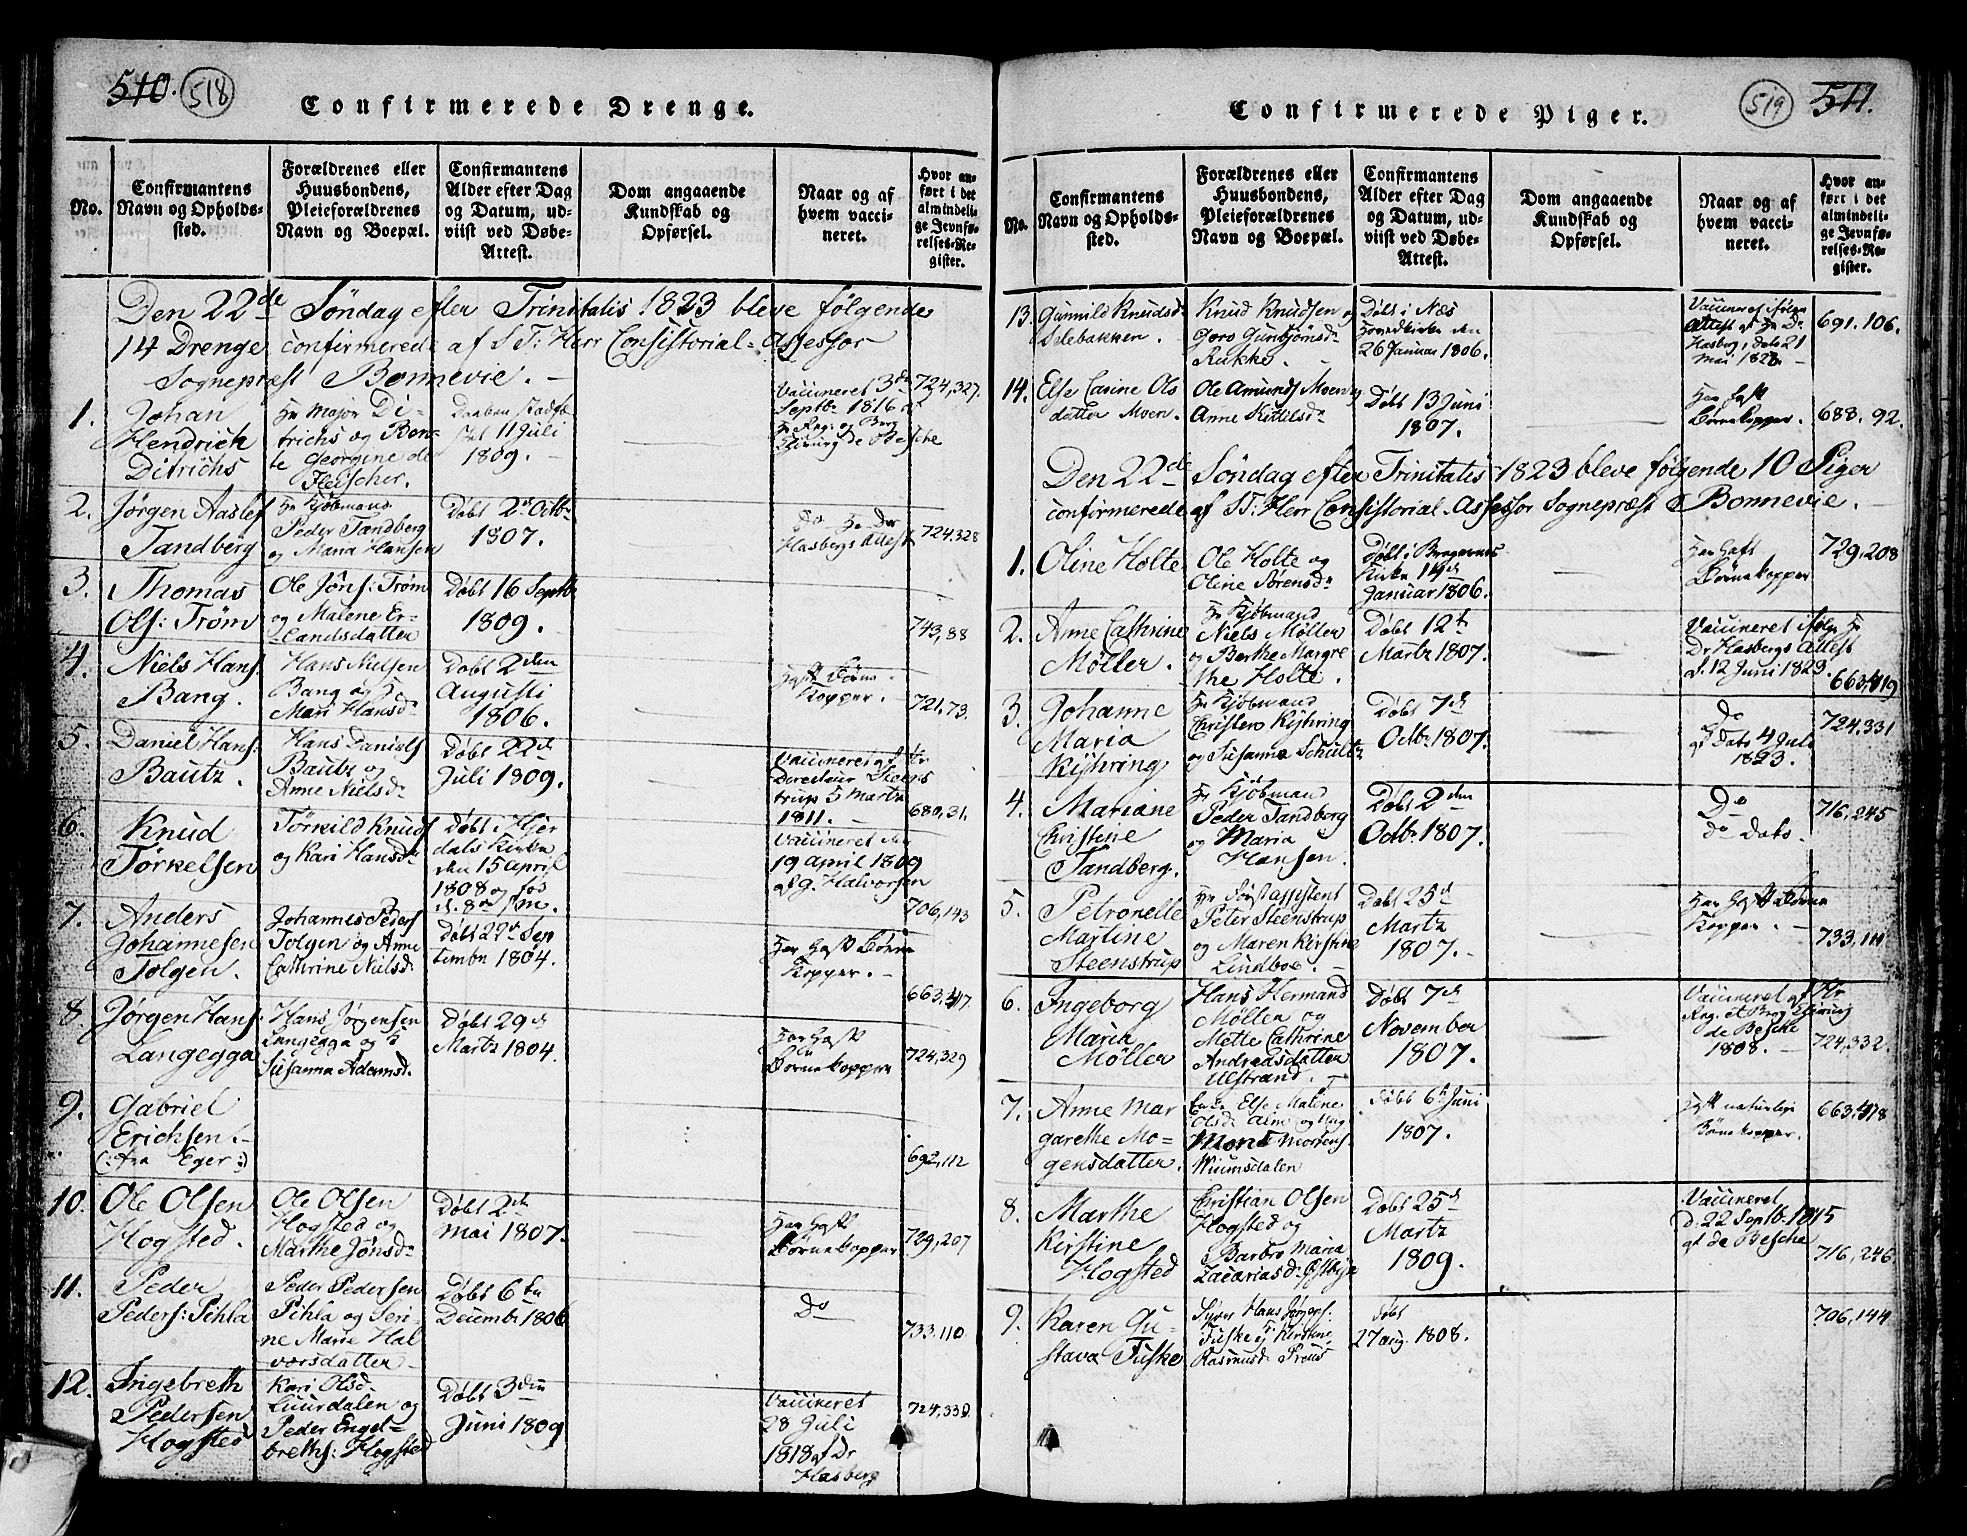 510. 518
Confirmerede Drenge.
No.
Confirmantens
Navn og Opholds-
sted.
Forældrenes eller
Huusbondens,
Pleieforældrenes
Navn og Boepæl.
Confirmantens
Alder efter Dag
og Datum, ud-
viist ved Døbe-
Attest.
Dom angaaende
Kundskab og
Opførsel.
Naar og af
hvem vacci-
neret.
Hvor an-
ført i det
almindeli-
ge Jevnfø-
relses-Re-
gister.
Den 22de Søndag efter Trinitatis 1823 bleve følgende
14 Drenge confirmerede af S. T. Herr Consistorial-Assessor
Sognepræst Bonnevie.
1.
Johan
Hendrich
Ditrichs
Hr Major Di-
trichs og Ben-
te Georgine de
Fleischer.
11 Juli
1809.
Vaccineret 3de
Septbr 1816 af
de Besche
724,327.
2.
Jørgen Aaslef
Tandberg
Hr Kjøbmand
Peder Tandberg
og Maria Hansen
Døbt 2d Octbr
1807.
Do Hr Dr
Hasbergs Attest
724,328
3.
Thomas
Ols: Trøm
Ole Jøns: Trøm
og Malene Er-
landsdatter
Døbt 16 Septbr
1809.
743,88
4.
Niels Hans:
Bang.
Hans Nielsen
Bang og
Mari Hansd.
Døbt 2den
Augusti
1806.
Haft Børne-
Kopper.
721,73.
5.
Daniel Hans:
Bautz.
Hans Daniels
Bautz og
Anne Nielsd.
Døbt 22d
Juli 1809.
Vaccineret af Hr
Directeur Steens
trup 5 Martz
1811.
680,31.
6.
Knud
Tørkelsen
Tørkild Knuds
og Kari Hansd.
Døbt i Hjer
dals Kirke
den 15 April
1808 og
Vaccineret den
19 April 1809
af G. Halvorsen
706,143
7.
Anders
Johannesen
Tolgen.
Johannes Peders
Tolgen og Anne
Cathrine Nielsd.
Døbt 22d Sep
tember 1804.
Har haft Børne
Kopper.
663,417.
8.
Jørgen Hans:
Langegga
Hans Jørgensen
Langegga og
Susanna Adamsd.
Døbt 29d
Martz 1804.
Har haft
Børnekopper
724,329
9.
Gabriel
Erichsen
(: fra Eger :)
692,112
10.
Ole Olsen
Hogsted.
Ole Olsen
Hogsted og
Marthe Jønsd.
Døbt 2d
Mai 1807.
Har haft
Børnekopper
729,207
11.
Peder
Peders: Pihla
Peder Pedersen
Pihla og Seri-
ne Marie Hal
vorsdatter
Døbt 6te
Decembr 1806
Do
733.110.
12.
Ingebreth
Pedersen
Hogsted
Kari Olsd.
Luurdalen og
Peder Engel-
breths: Hogsted
Døbt 3die
Juni 1809
Vaccineret
28 Juli
1818 af Dr
Hasberg
724,330.
519 511.
Confirmerede Piger.
No.
Confirmantens
Navn og Opholds-
sted.
Forældrenes eller
Huusbondens,
Pleieforældrenes
Navn og Boepæl.
Confirmantens
Alder efter Dag
og Datum, ud-
viist ved Døbe-
Attest.
Dom angaaende
Kundskab og
Opførsel.
Naar og af
hvem vacci-
neret.
Hvor an-
ført i det
almindeli-
ge Jevnfø-
relses-Re-
gister.
13.
Gunnild Knudsd.
Delebakken.
Knud Knudsen og
Goro Gunbjørnsd.
Rukke.
Døbt i Næs
Hovedkirke den
26 Januar 1806.
Vaccineret ifølge
Attest af Hr Dr
Hasberg, dat. 21
Mai 1823.
691.106.
14.
Else Carine Ols
datter Moen.
Ole Amunds Moen og
Anne Kittelsd.
Døbt 13 Juni
1807.
Har haft
Børnekopper.
688.92.
Den 22de Søndag efter Trinitatis 1823 bleve følgende 10 Piger
confirmerede af S. T. Herr Consistorial-Assessor Sognepræst Bonnevie.
1.
Oline Holte
Ole Holte og
Oline Sørensd.
Døbt i Bragernes
Kirke 14d
Januar 1806.
Har haft
Børnekopper
729,208
2.
Anne Cathrine
Møller.
Hr Kjøbmand
Niels Møller
og Berthe Margre
the Holte.
Døbt 12te
Martz 1807.
Vaccineret ifølge Hr
Dr Hasbergs Attest
d. 12 Juni 1823.
663,419
3.
Johanne
Maria
Kyhring
Hr Kjøbmand
Christen Kyhring
og Susanna Schultz
Døbt 7d
Octbr 1807.
Do
af Dato 4 Juli
1823.
724,331
4.
Mariane
Christine
Tandberg.
Hr Kjøbmand
Peder Tandberg
og Maria
Hansen.
Døbt 2den
Octbr 1807.
Do
do Dato.
716,245
5.
Petronelle
Martine
Steenstrup
Peter Steenstrup
og Maren Kirstine
Lindboe.
Døbt 25d
Martz
1807.
Har haft Børne
Kopper.
733,111
6.
Ingeborg
Maria
Møller
Hans Hermand
Møller og
Mette Cathrine
Andreasdatter
Ulstrand.
Døbt 7d
November
1807.
Vaccineret af Hr
Reg. et Berg Chirurg
de Besche
1808.
724,332.
7.
Anne Mar
garethe Mo-
gensdatter.
Enke Else Malene
Olsd.
Mons Mortens
Døbt 6te Juni
1807.
Haft naturlige
Børnekopper.
663,418
8.
Marthe
Kirstine
Hogsted
Christian Olsen
Hogsted og
Barbro Maria
Zacariasd. Østbye
Døbt 25d
Martz
1809.
Vaccineret
d. 22 Septb. 1815
af de Besche
716,246.
9.
Karen Gu-
stava Fuske
Hans Jørgens.
Fuske og Kirstine
Rasmusd.
Døbt
27 Aug. 1808.
706,144